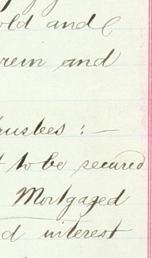 old and
rein and
rustees :—
to be secured
Mortgaged
d interest